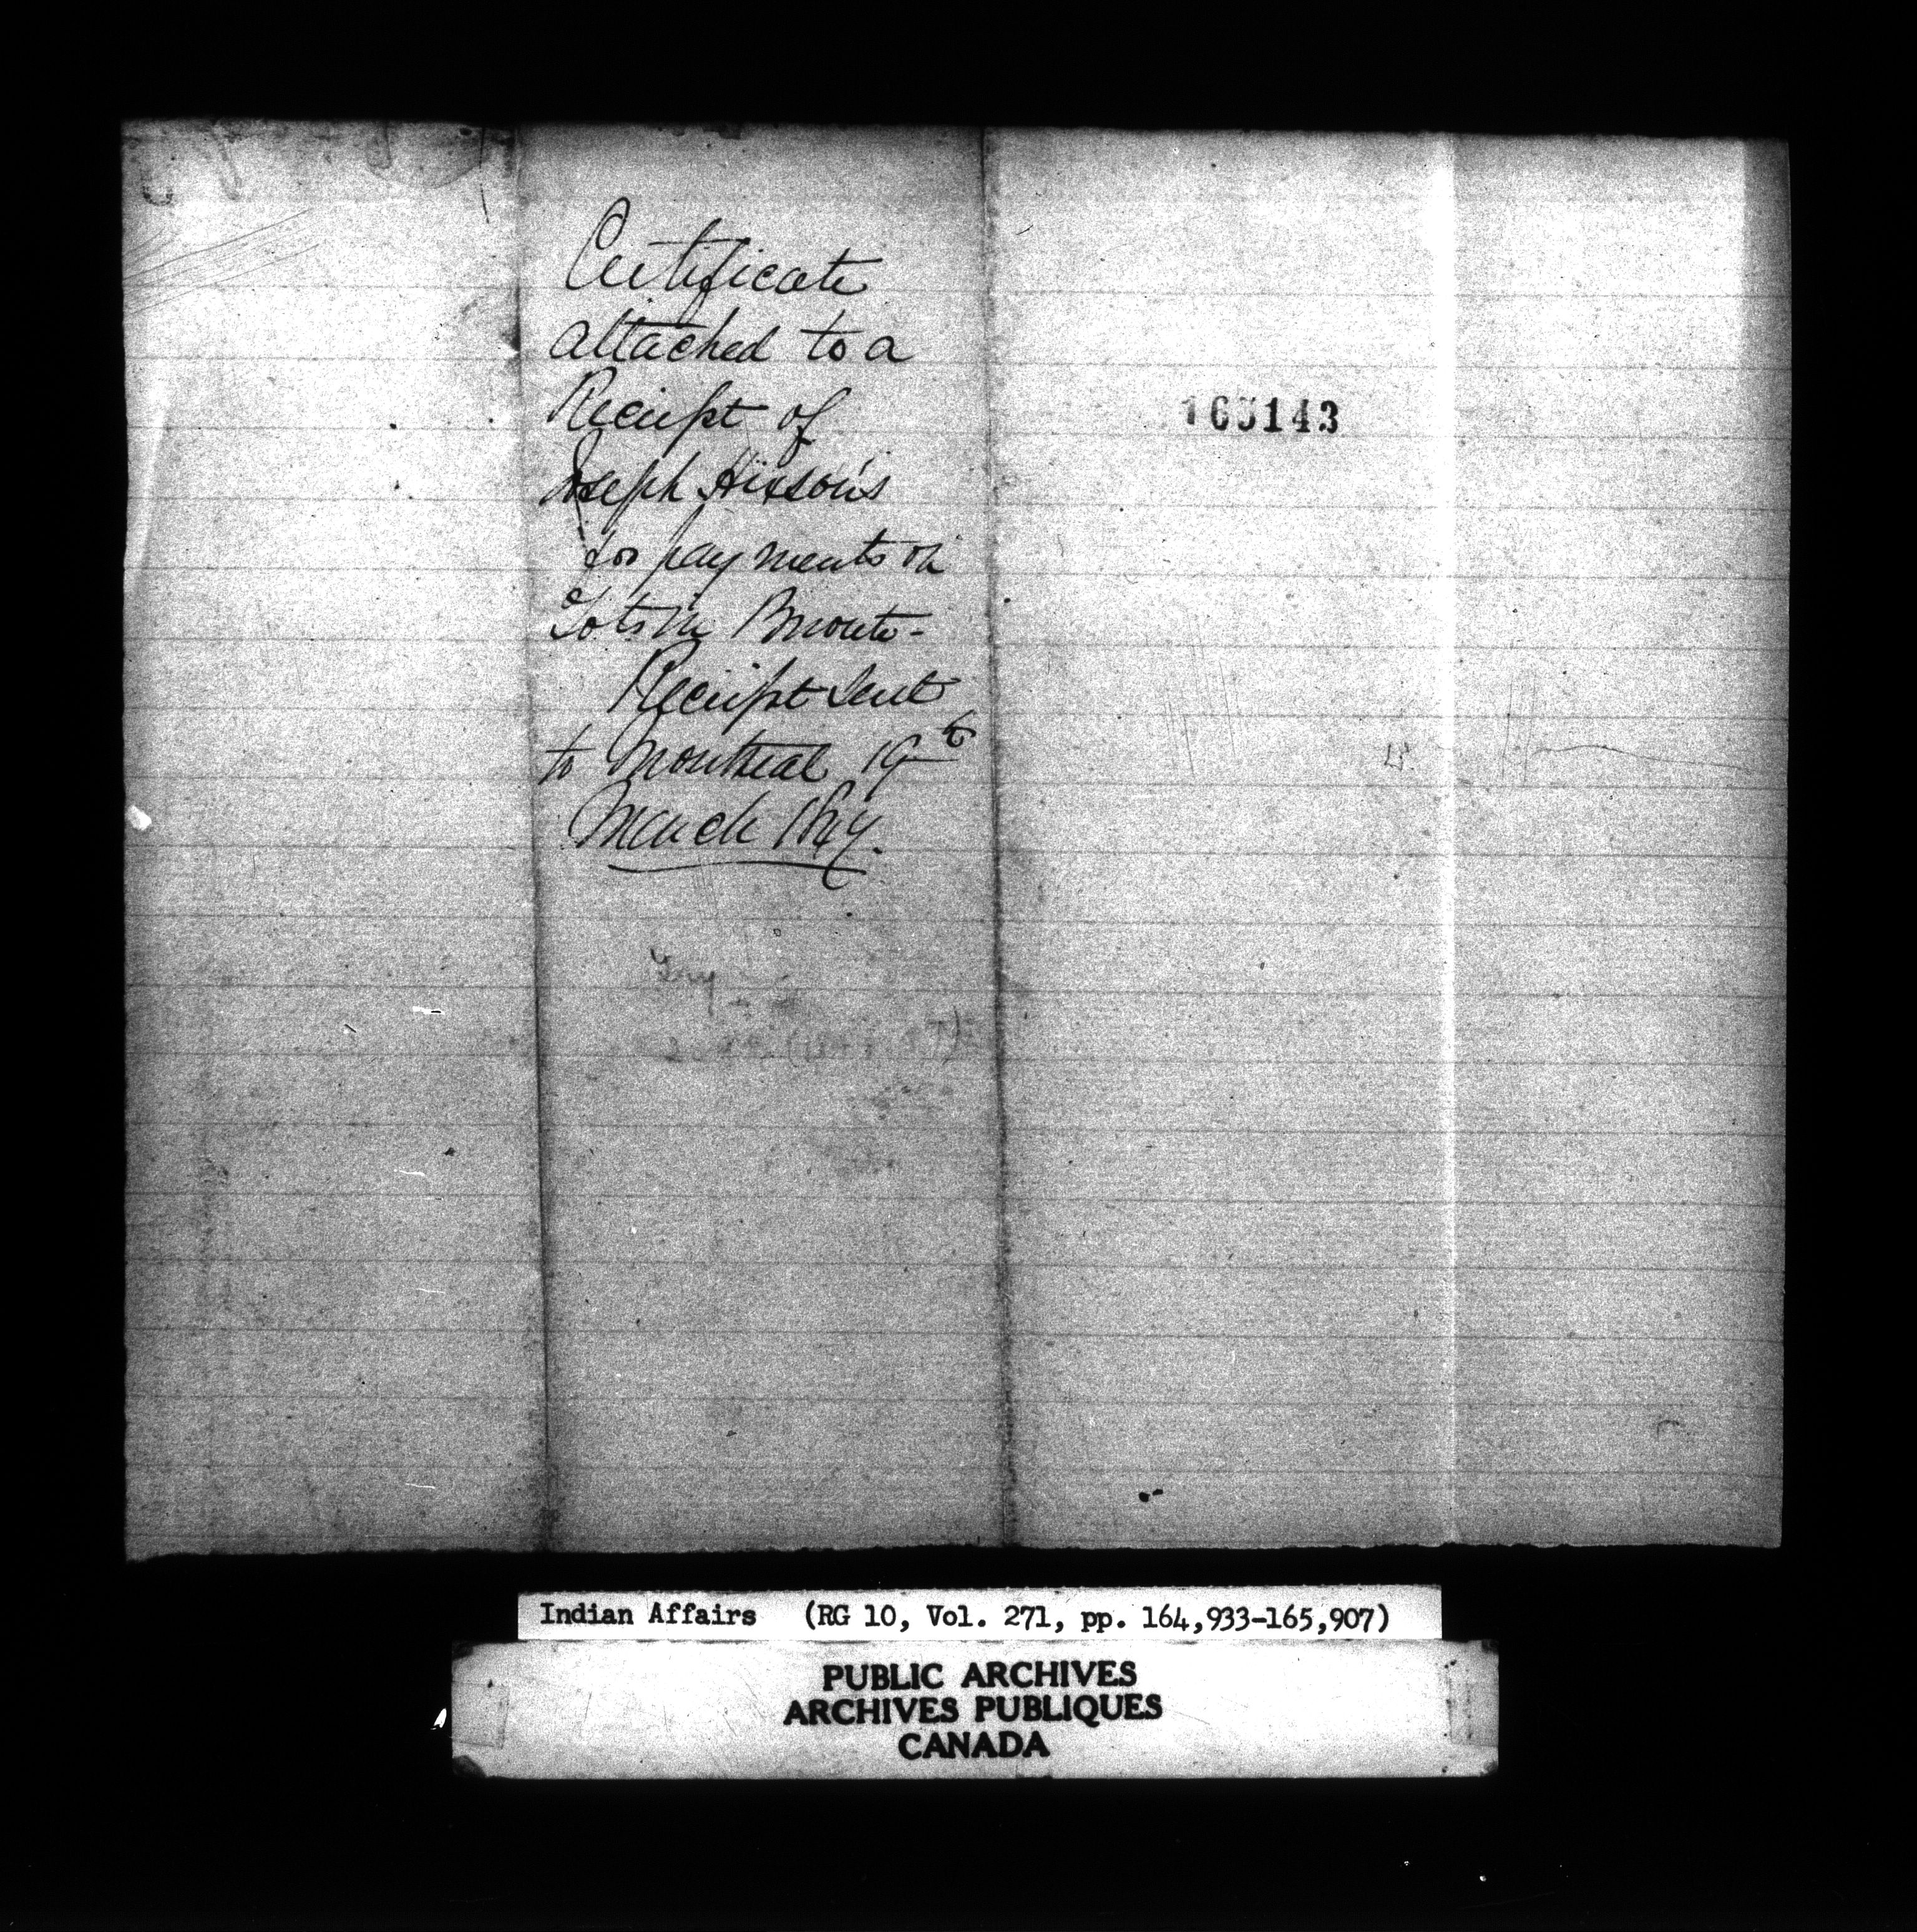 Certificate
attached to a
Receipt of
Joseph Hixson's
for payments on
Lots in Bronte -
Receipt sent
to Montreal 19th
March 1847.
165143
Indian Affairs (RG 10, Vol. 271, pp. 164,933-165,907)
PUBLIC ARCHIVES
ARCHIVES PUBLIQUES
CANADA